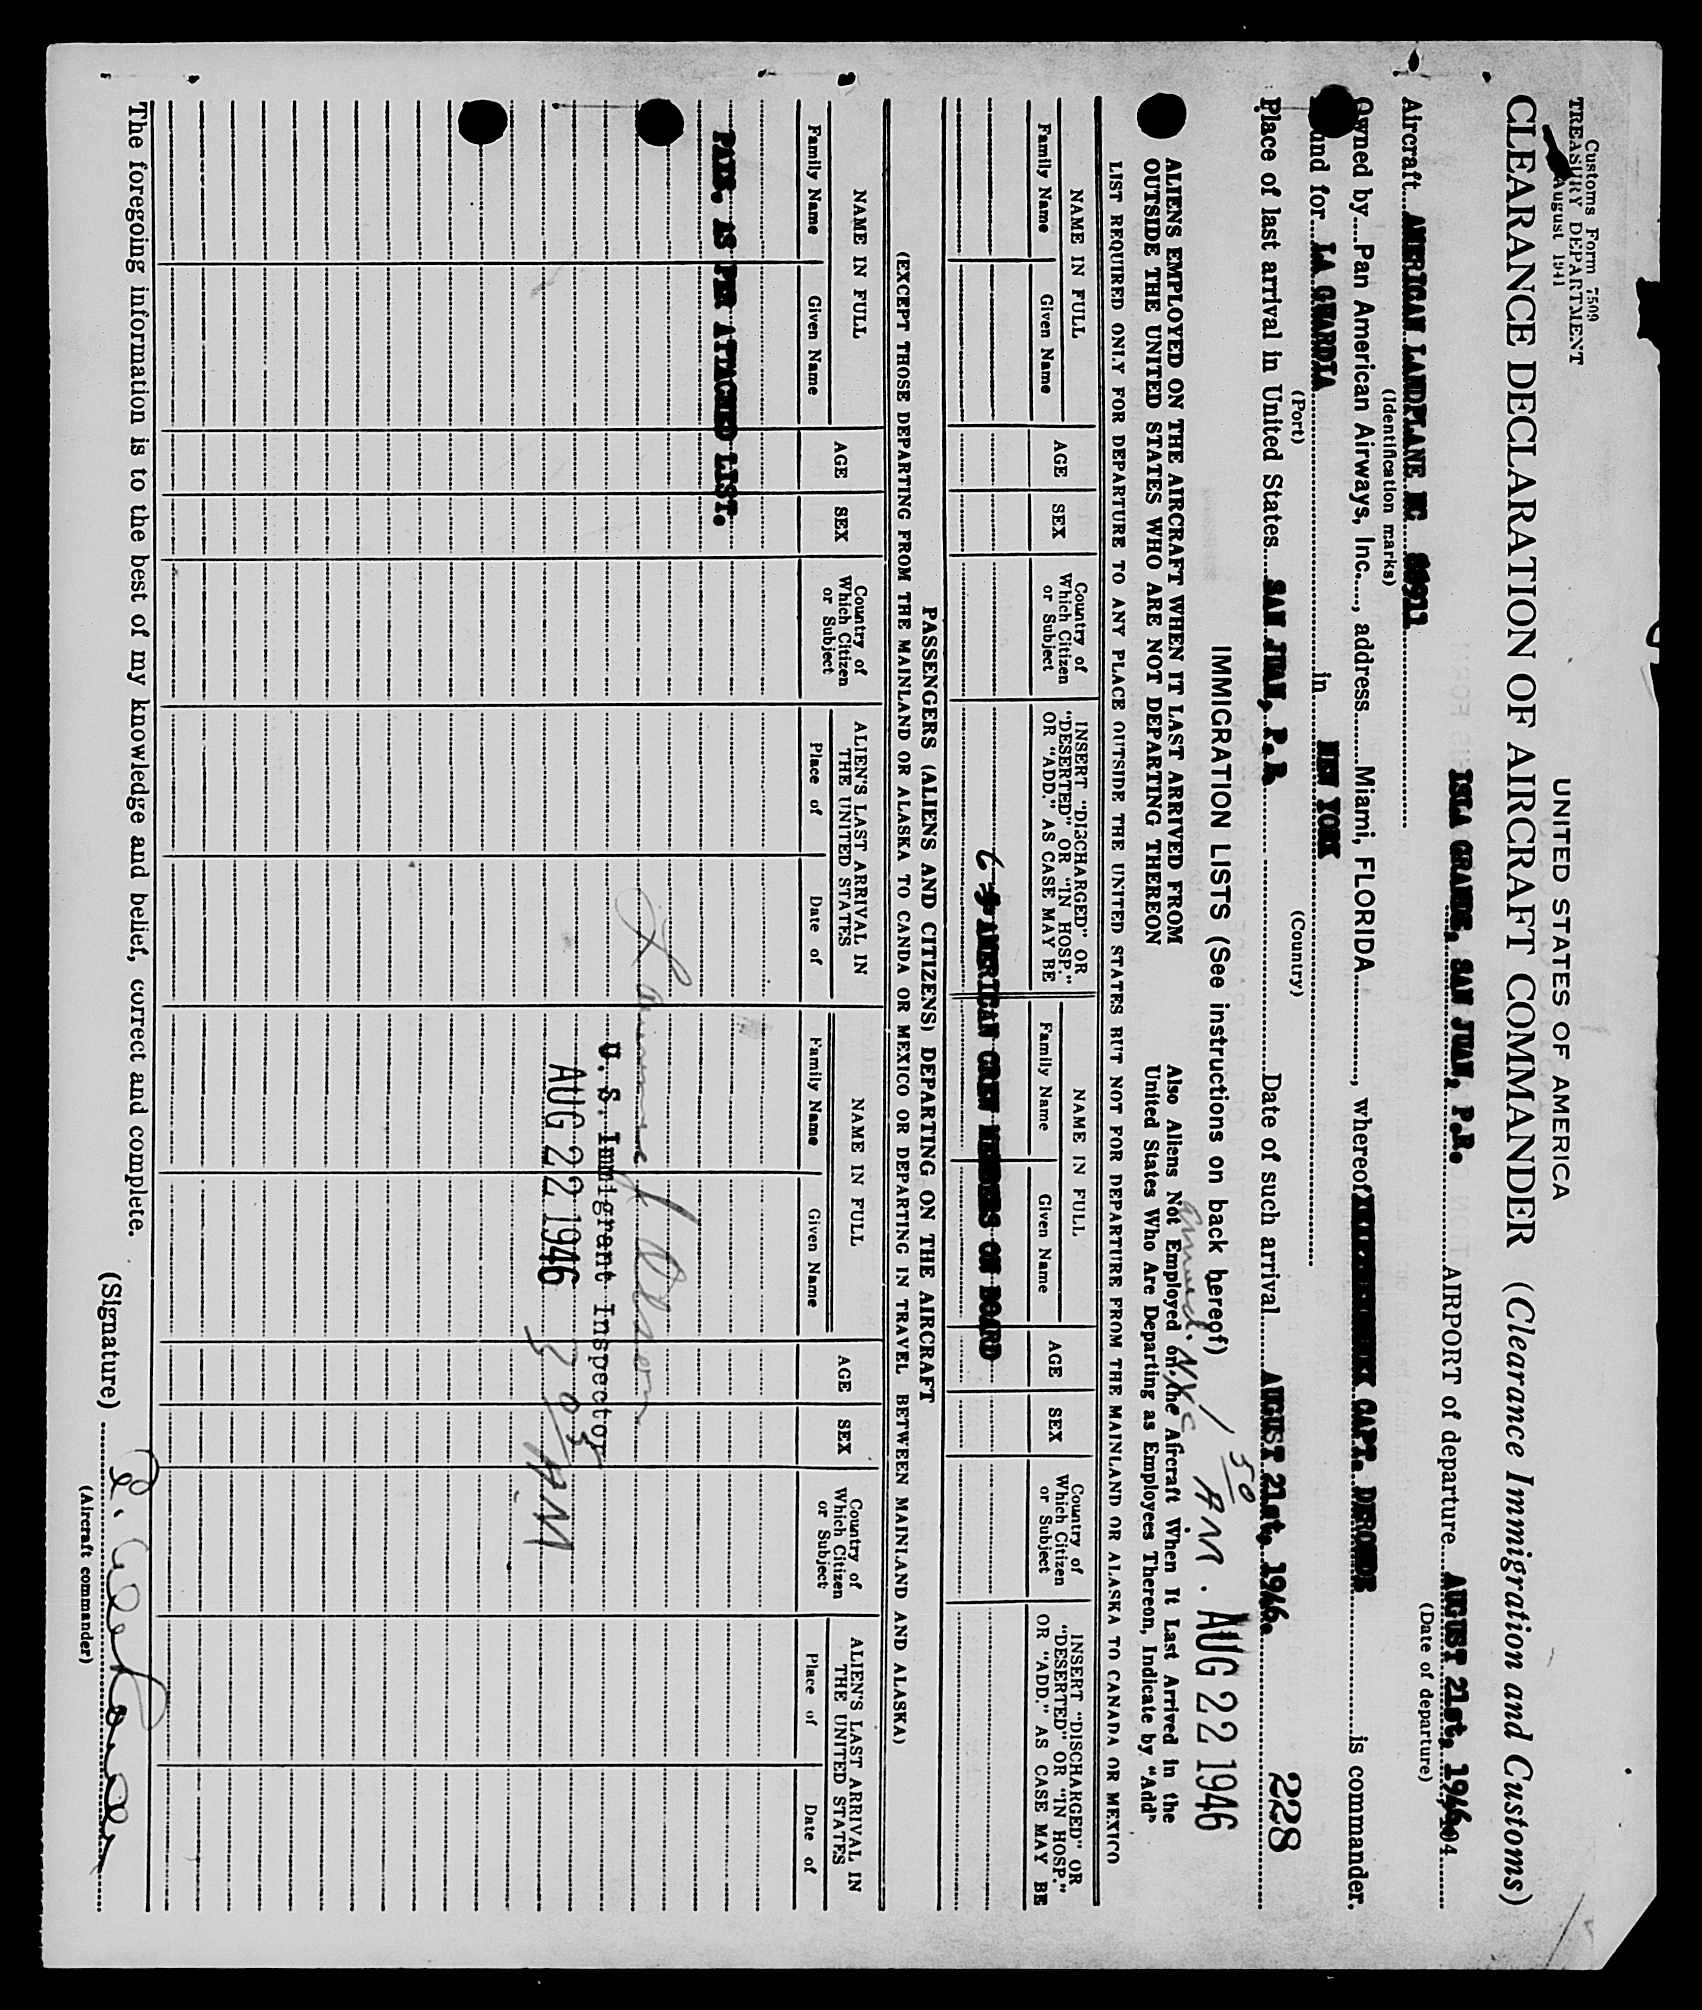 Customs Form 7509
TREASURY DEPARTMENT
August 1941
UNITED STATES OF AMERICA
CLEARANCE DECLARATION OF AIRCRAFT COMMANDER (Clearance Immigration and Customs)
ISLA GRANDE, SAN JUAN, P.R. AIRPORT of departure AUGUST 21st, 1946 194
(Date of departure)
Aircraft AMERICAN LANDPLANE NC 88911
(Identification marks)
Owned by Pan American Airways, Inc., address Miami, FLORIDA, whereof CAPT. is commander.
and for LA GUARDIA in NEW YORK
(Port) (Country)
Place of last arrival in United States SAN JUAN, P.R. Date of such arrival AUGUST 21st, 1946.
228
IMMIGRATION LISTS (See instructions on back hereof) 1 50 AM. AUG 22 1946
ALIENS EMPLOYED ON THE AIRCRAFT WHEN IT LAST ARRIVED FROM
OUTSIDE THE UNITED STATES WHO ARE NOT DEPARTING THEREON
Also Aliens Not Employed on the Aircraft When It Last Arrived in the
United States Who Are Departing as Employees Thereon, Indicate by "Add"
LIST REQUIRED ONLY FOR DEPARTURE TO ANY PLACE OUTSIDE THE UNITED STATES BUT NOT FOR DEPARTURE FROM THE MAINLAND OR ALASKA TO CANADA OR MEXICO
NAME IN FULL
Family Name Given Name
AGE
SEX
Country of
Which Citizen
or Subject
INSERT "DISCHARGED" OR
"DESERTED" OR "IN HOSP."
OR "ADD." AS CASE MAY BE
NAME IN FULL
Family Name Given Name
AGE
SEX
Country of
Which Citizen
or Subject
INSERT "DISCHARGED" OR
"DESERTED" OR "IN HOSP."
OR "ADD." AS CASE MAY BE
6 AMERICAN CREW MEMBERS ON BOARD
PASSENGERS (ALIENS AND CITIZENS) DEPARTING ON THE AIRCRAFT
(EXCEPT THOSE DEPARTING FROM THE MAINLAND OR ALASKA TO CANDA OR MEXICO OR DEPARTING IN TRAVEL BETWEEN MAINLAND AND ALASKA)
NAME IN FULL
Family Name Given Name
AGE
SEX
Country of
Which Citizen
or Subject
ALIEN'S LAST ARRIVAL IN
THE UNITED STATES
Place of Date of
NAME IN FULL
Family Name Given Name
AGE
SEX
Country of
Which Citizen
or Subject
ALIEN'S LAST ARRIVAL IN
THE UNITED STATES
Place of Date of
PADS. AS PER ATTACHED LIST.
U. S. Immigrant Inspector
AUG 22 1946 3 05 AM
The foregoing information is to the best of my knowledge and belief, correct and complete.
(Signature)
(Aircraft commander)